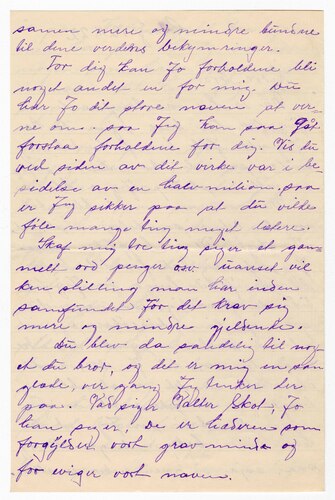 samen mere og mindre bundne
til dine verdens bekymringer.
For dig kan jo forholdene bli
noget andet en for mig. Du
har jo dit store navn at ver
ne om. saa Jeg kan saa godt
forstaa forholdene for dig. Vis du
ved siden av dit virke var i be
sidelse av en halv million. saa
er Jeg sikker paa at du vilde
føle mange ting meget letere.
Skaf mig tre ting siger et gam
melt ord penger osv uanset vil
ken stilling man har inden
samfundet før det krav sig
mere og mindre gjeldende.
Du blev da sandelig til nog
et du bror, og det er mig en saa
glede, ver gang Jeg tenker der
paa. Vad siger Valter Skot, Jo
han siger, De er hæderen som
forgylder vort grav minde og
for eviger vort navn.